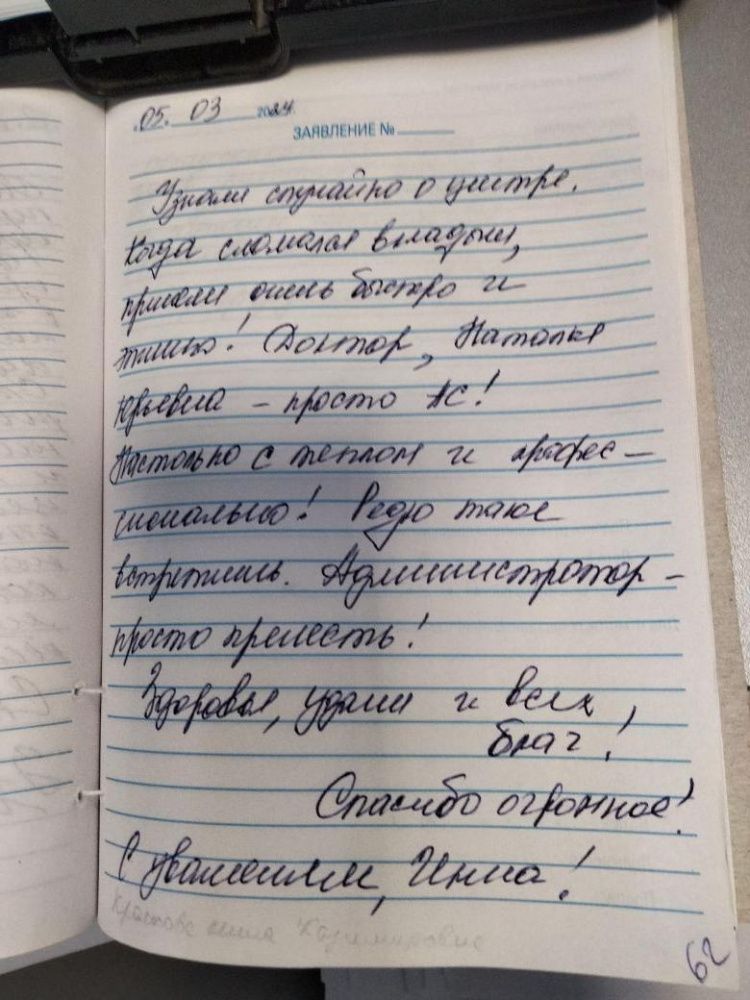 05. 03 2024г.
ЗАЯВЛЕНИЕ №
Узнали случайно о центре.
Когда сломался вкладыш,
приняли очень быстро и
Доктор, Наталья
Юрьевна – просто АС!
Настолько с теплом и профес–
сионально! Редко такое
встретишь. Администратор –
просто прелесть!
Здоровья, удачи и всех
благ!
Спасибо огромное!
С уважением, Инна!
62